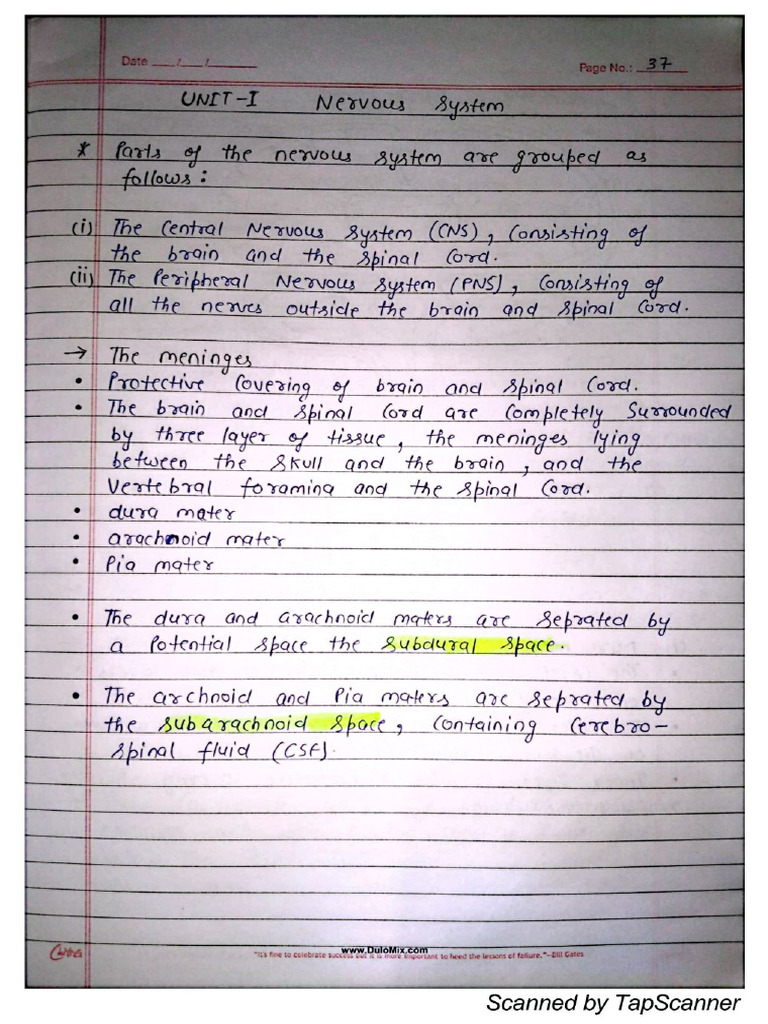 Date __/__/____
Page No.: 37
UNIT-I Nervous System
* Parts of the nervous system are grouped as
follows:
(i) The Central Nervous System (CNS), Consisting of
the brain and the spinal Cord.
(ii) The Peripheral Nervous System (PNS), Consisting of
all the nerves outside the brain and spinal Cord.
→ The meninges
• Protective Covering of brain and spinal Cord.
• The brain and spinal Cord are Completely Surrounded
by three layer of tissue, the meninges lying
between the skull and the brain, and the
Vertebral foramina and the spinal Cord.
• dura mater
• arachnoid mater
• Pia mater
• The dura and arachnoid maters are seprated by
a Potential space the subdural space.
• The archnoid and Pia maters are seprated by
the subarachnoid space, Containing Cerebro-
spinal fluid (CSF).
www.DuloMix.com
"It's fine to celebrate success but it is more important to heed the lessons of failure."–Bill Gates
Scanned by TapScanner